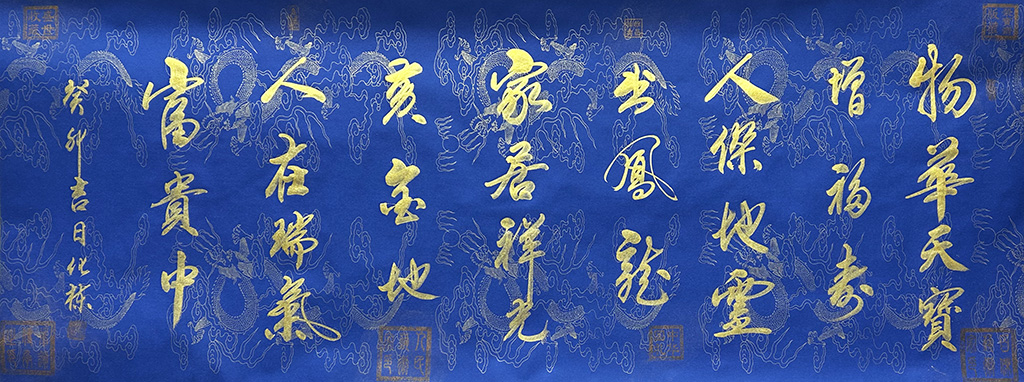 物華天寶
增福壽
人傑地靈
出鳳龍
家居祥光
亥金地
人在瑞氣
富貴中
癸卯吉日化